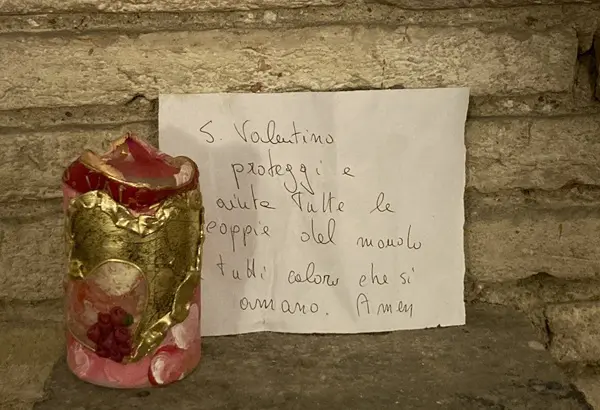 S. Valentino
proteggi e
aiuta tutte le
coppie del mondo
tutti coloro che si
amano. Amen